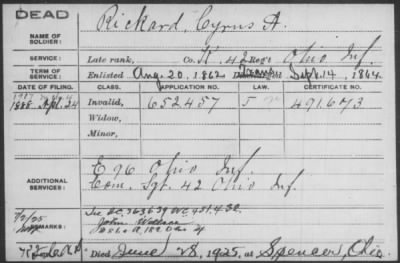 DEAD
Rickard, Cyrus A.
NAME OF SOLDIER:
SERVICE: Late rank, Co. K, 42 Reg't Ohio Inf.
TERM OF SERVICE: Enlisted Aug. 20, 1862 Sept. 14, 1864
DATE OF FILING. CLASS. APPLICATION NO. LAW. CERTIFICATE NO.
1888 Apl. 24 Invalid, 652457 491673
Widow,
Minor,
ADDITIONAL SERVICES: E 96 Ohio Inf.
Com. Sgt. 42 Ohio Inf.
REMARKS:
Died June 28, 1925, at Spencer, Ohio